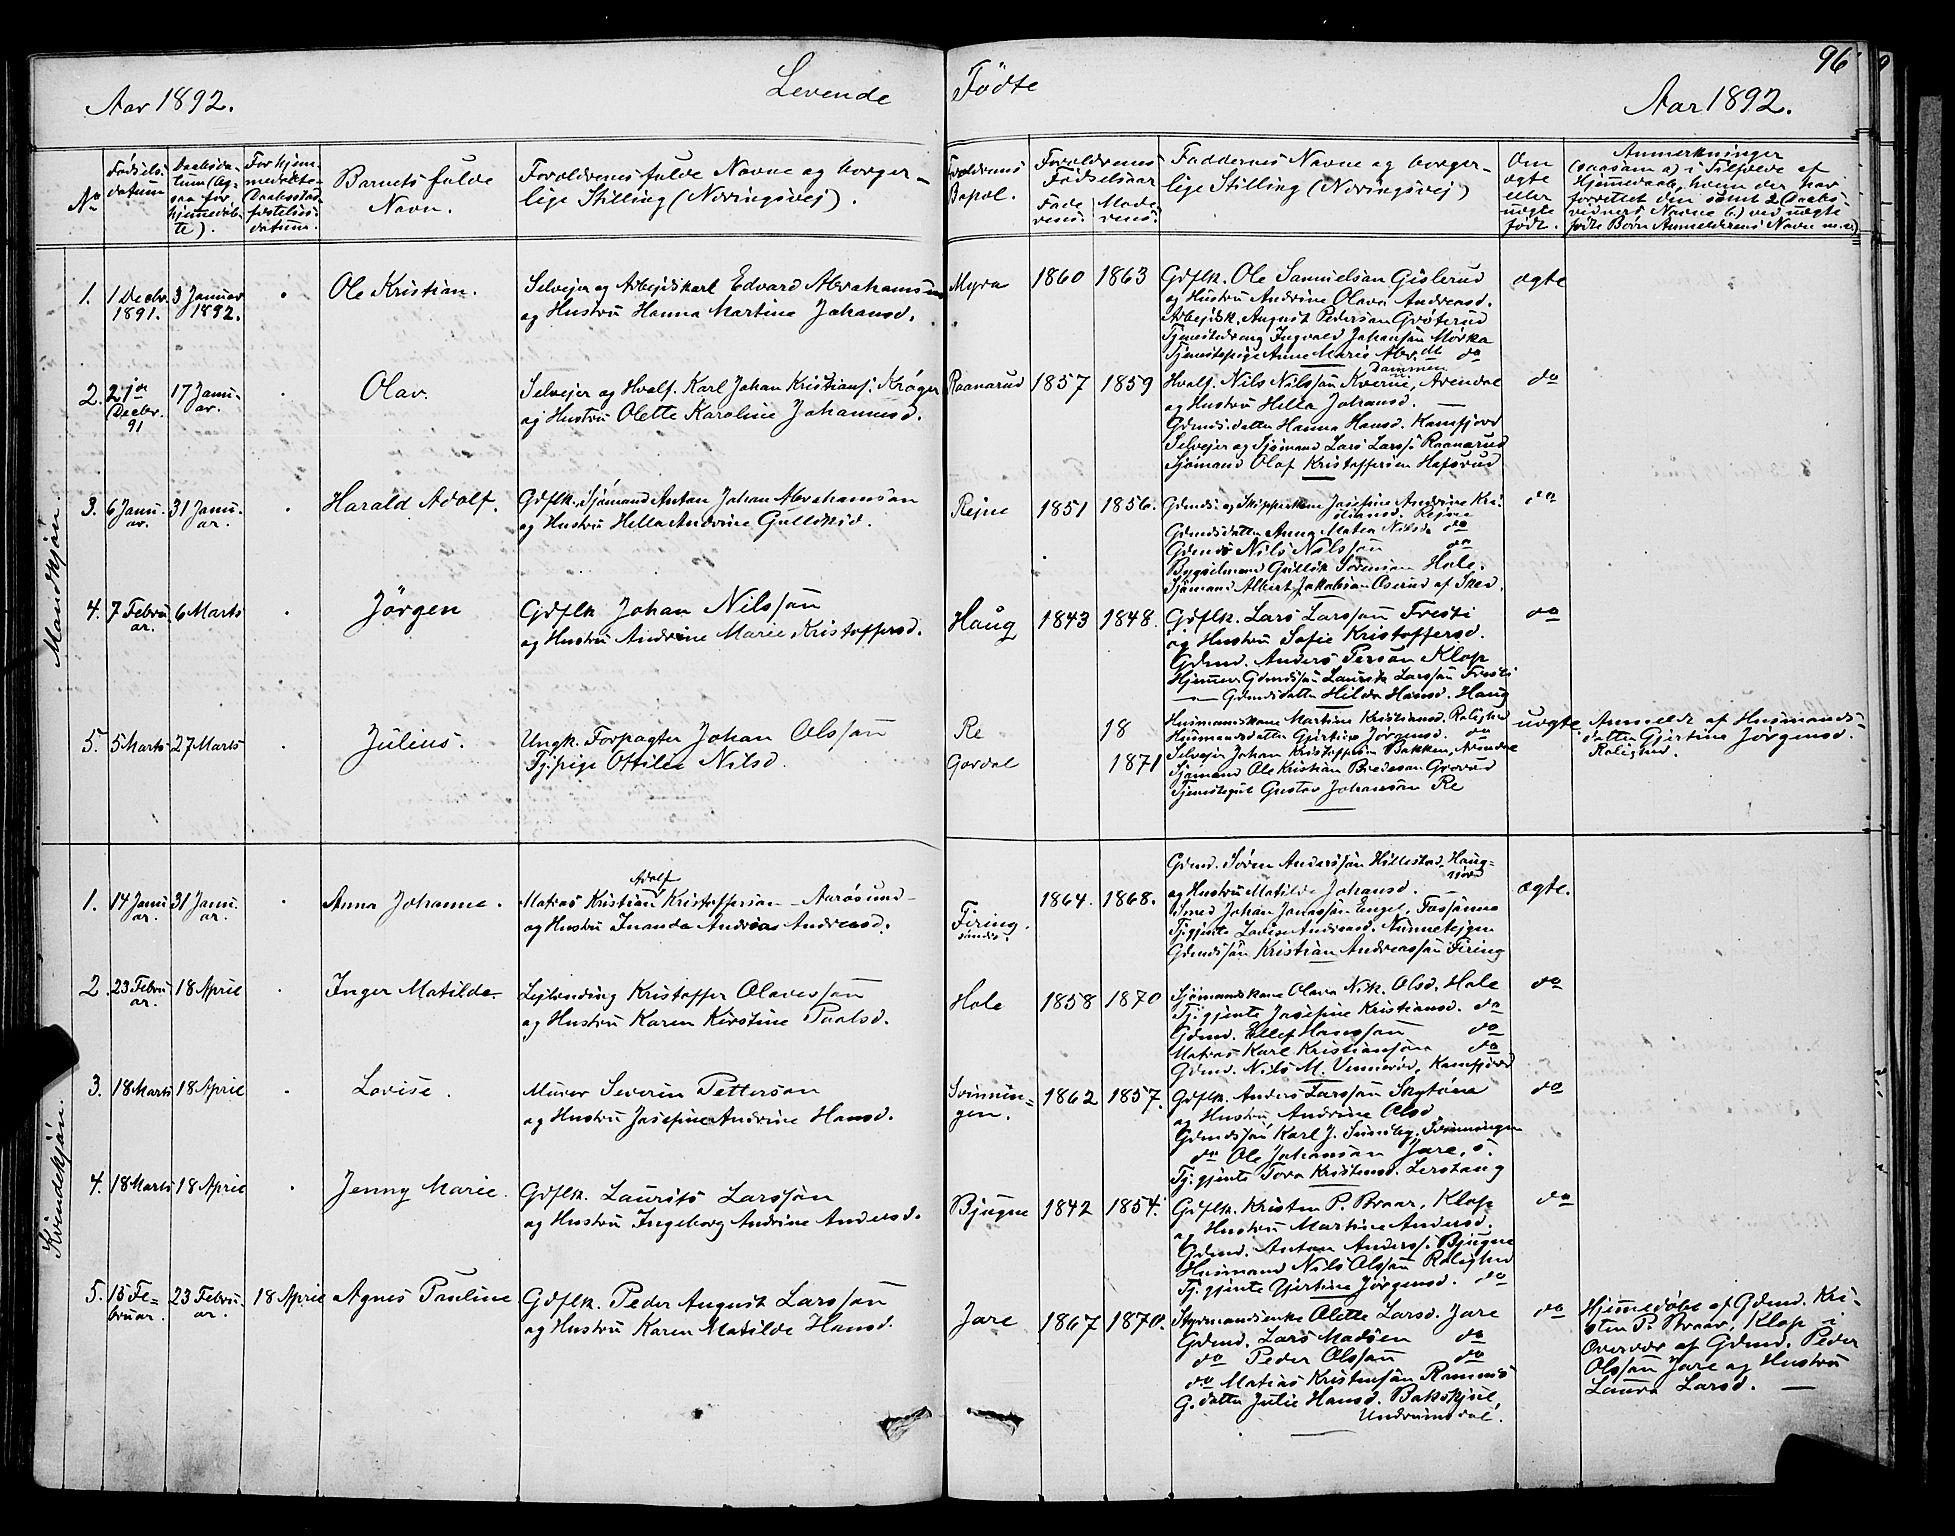 96
Aar 1892.
Levende
Fødte
Aar 1892.
No
Fødsels-
datum
Daabsda-
tum (Og-
saa for
hjemmedøb-
te).
For hjem-
medøbte
Daabsstad-
fæstelses-
datum.
Barnets fulde
Navn.
Forældrenes fulde Navne og borger-
lige Stilling (Næringsvej).
Forældrenes
Bopæl.
Forældrenes
Fødselsaar
Fade-
rens.
Mode-
rens.
Faddernes Navne og borger-
lige Stilling (Næringsvej)
Om
ægte
eller
uægte
født.
Anmerkninger
(saasom a) i Tilfælde af
Hjemmedaab, hvem der har
forrettet den samt 2 Daabs-
vidners Navne b.) ved uægte
fødte Børn Anmelderens Navn m.m.)
Mandkjøn.
1.
1 Decbr.
1891.
3 Januar
1892.
Ole Kristian.
Selvejer og Arbejdskarl Edvard Abrahamsen
og Hustru Hanna Martine Johansd.
Myra
1860
1863
Gdflk. Ole Samuelsøn Gislerud
og Hustru Andrine Olava Andreasd.
Arbejdsk. August Pedersøn Grøterud
Tjenestedreng Ingvald Johansøn Mørka
Tjenestepige Anne Marie Abr.dt do
ægte
2.
2 ja
Decbr.
91
17 Janu-
ar.
Olav.
Selvejer og Hvalf. Karl Johan Kristians. Krøger
og Hustru Olette Karoline Johannesd.
Raanerud
1857
1859
Dammen
Hvalf. Nils Nilssøn Kverne, Arendal
og Hustru Hella Johansd.
Gdmds.datter Hanna Hansd. Kamfjord
Selvejer og Sjømand Lars Larss. Raanerud
Sjømand Olaf Kristoffersen Hafsrud
do
3.
6 Janu-
ar.
31 Janu-
ar.
Harald Adolf.
Gdflk. Sjømand Anton Johan Abrahamsøn
og Hustru Hella Andrine Gulliksd.
Rejne
1851
1856.
Gdmds. og Skipperkone Josefine Andrine Kri-
stiansd. Rejne
Gdmdsdatter Anna Matea Nilsd. do
Gdmds. Nils Nilssøn do
Bygselmand Gullik Sørensøn Hole.
Sjømand Albert Jakobsøn Oserud af Sked.
do
4.
7 Febru-
ar.
6 Marts
Jørgen
Gdflk Johan Nilssøn
og Hustru Andrine Marie Kristoffersd.
Haug
1843
1848.
Gdflk. Lars Larssøn Fresti
og Hustru Sofie Kristoffersd.
Gdmd. Anders Persøn Klop
Hjemmev. Gdmdsøn Laurits Larssøn Fresti
— Gdmdsdatter Hilda Hansd. Haug
do
5.
5 Marts
27 Marts
Julius.
Ungk. Forpagter Johan Olssøn
Tj.pige Ottilea Nilsd.
Re
Gordal
18
1871
Husmandskone Martine Kristiansd. Rolighed
Husmandsdatter Gjertine Jørgensd. do
Selvejer Johan Kristoffersøn Bakken, Arendal
Sjømand Ole Kristian Bredesøn Grorud
Tjenestegut Gustav Johansøn Re
uægte.
Anmeldt af Husmands-
datter Gjertine Jørgensd.
Rolighed.
Kvindekjøn.
1.
14 Janu-
ar.
31 Janu-
ar.
Anna Johanne.
Adolf
Matros Kristian Kristoffersøn - Aarøsund -
og Hustru Inanda Andrea Andreasd.
Firing.
1864.
1868.
Gdmd. Søren Anderssøn Hillestad, Haug-
og Hustru Matilde Johansd.
Smed Johan Jonassøn Engel, Tøssønna
Tj.gjente Lovise Andreasd. Nunnetejgen
Gdmdssøn Kristian Andreassøn Firing
ægte.
2.
23 Febru-
ar.
18 April
Inger Matilde.
Lejlænding Kristoffer Olavessøn
og Hustru Karen Kirstine Paalsd.
Hole
1858
1870
Sjømandskone Olava Nik. Olsd. Hole
Tj.gjente Josefine Kristiansd. do
Gdmd. Ellef Hanssøn do
Matros Karl Kristiansøn do
Gdmd. Nils M. Vennerød, Kamfjord
do
3.
18 Marts
18 April
Lovise.
Murer Severin Pettersøn
og Hustru Josefine Andrine Hansd.
Svinnin-
gen.
1862
1857.
Gdflk. Anders Larssøn Skytøna
og Hustru Andrine Olsd
Gdmdssøn Karl J. Sundby, Svinningen
do Ole Johansøn Jare, s.
Tj.gjente Tora Kristensd. Lerstang
do
4.
18 Marts
18 April
Jenny Marie.
Gdflk. Laurits Larssøn
og Hustru Ingeborg Andrine Andersd.
Bjugne
1842
1854.
Gdflk. Kristen P. Braar, Klop
og Hustru Martine Andersd.
Gdmd. Anton Anders. Bjugne
Husmand Nils Olssøn Rolighed
Tj.gjente Gjertine Jørgensd. do
do
5.
15 Fe-
bruar.
23 Febru-
ar.
18 April
Agnes Pauline
Gdflk. Peder August Larssøn
og Hustru Karen Matilde Hansd.
Jare
1867
1870.
Styrmandsenke Olette Larsd. Jare
Gdmd. Lars Madsen do
do Peder Olssøn do
do Matias Kristensøn Ramnes
G.datter Julie Hansd. Bakskjul,
Undrumsdal.
do
Hjemmedøbt af Gdmd. Kri-
sten P. Braar, Klop i
Overvær af Gdmd. Peder
Olssøn Jare og Hustru
Laura Larsd. —